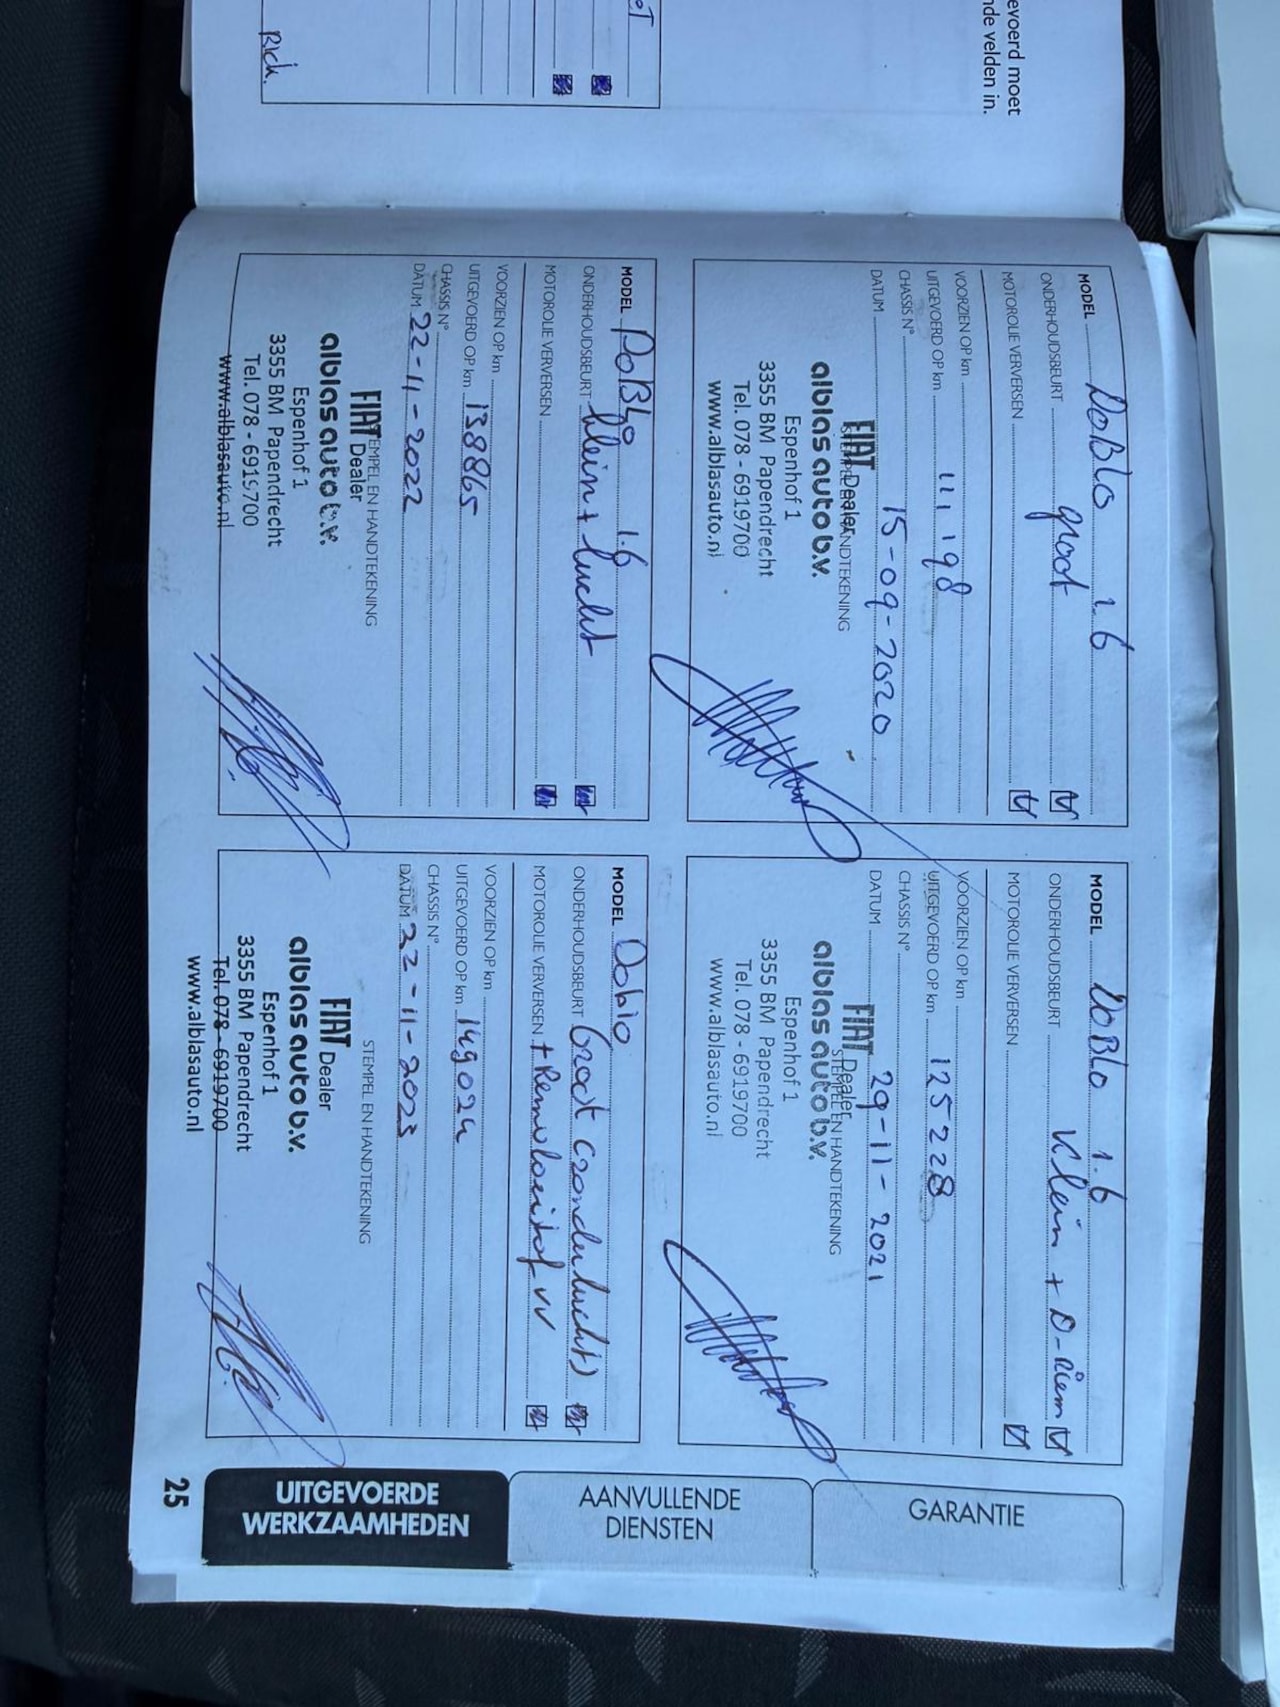 evoerd moet
nde velden in.
Rich.
MODEL DOBLO 1.6
ONDERHOUDSBEURT groot
MOTOROLIE VERVERSEN
VOORZIEN OP km
UITGEVOERD OP km 111198
CHASSIS N°
DATUM 15-09-2020
STEMPEL EN HANDTEKENING
FIAT Dealer
alblas auto b.v.
Espenhof 1
3355 BM Papendrecht
Tel. 078 - 6919700
www.alblasauto.nl
MODEL DOBLO 1.6
ONDERHOUDSBEURT Klein + D-riem
MOTOROLIE VERVERSEN
VOORZIEN OP km
UITGEVOERD OP km 125228
CHASSIS N°
DATUM 29-11-2021
STEMPEL EN HANDTEKENING
FIAT Dealer
alblas auto b.v.
Espenhof 1
3355 BM Papendrecht
Tel. 078 - 6919700
www.alblasauto.nl
MODEL DOBLO 1.6
ONDERHOUDSBEURT klein + lucht
MOTOROLIE VERVERSEN
VOORZIEN OP km
UITGEVOERD OP km 138865
CHASSIS N°
DATUM 22-11-2022
STEMPEL EN HANDTEKENING
FIAT Dealer
alblas auto b.v.
Espenhof 1
3355 BM Papendrecht
Tel. 078 - 6919700
www.alblasauto.nl
MODEL Doblo
ONDERHOUDSBEURT Groot (zonder lucht)
MOTOROLIE VERVERSEN + Remvloeistof vv
VOORZIEN OP km
UITGEVOERD OP km 149024
CHASSIS N°
DATUM 22-11-2023
STEMPEL EN HANDTEKENING
FIAT Dealer
alblas auto b.v.
Espenhof 1
3355 BM Papendrecht
Tel. 078 - 6919700
www.alblasauto.nl
GARANTIE
AANVULLENDE
DIENSTEN
UITGEVOERDE
WERKZAAMHEDEN
25